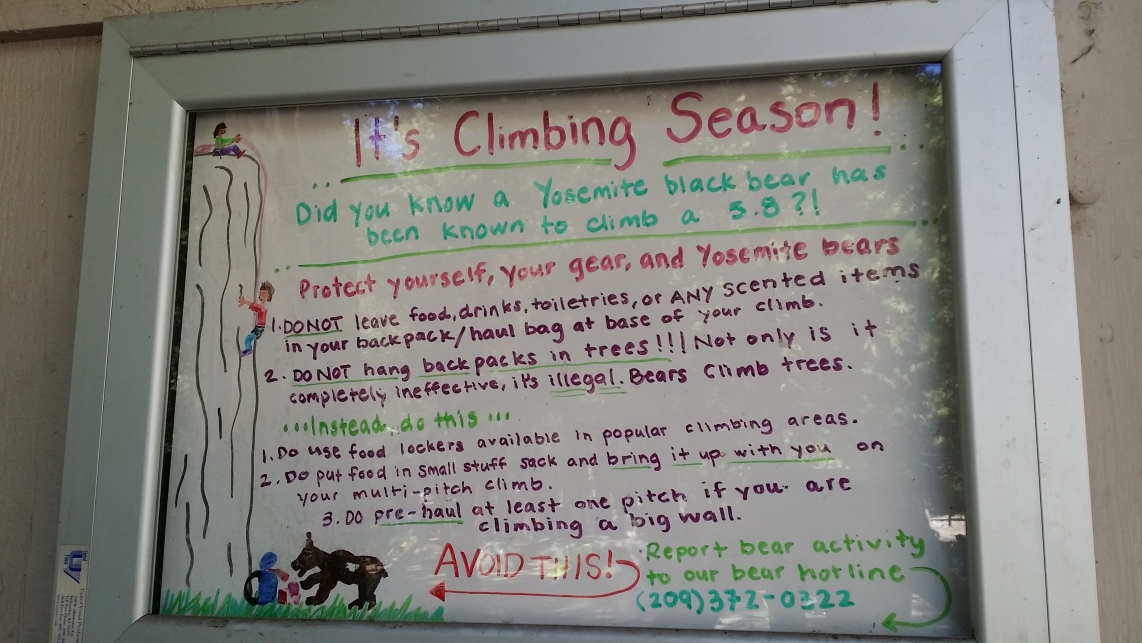 It's Climbing Season!
Did you know a Yosemite black bear has
been known to climb a 5.8?!
Protect yourself, your gear, and Yosemite bears
1. DO NOT leave food, drinks, toiletries, or ANY scented items
in your backpack/haul bag at base of your climb.
2. DO NOT hang backpacks in trees!!! Not only is it
completely ineffective, it's illegal. Bears climb trees.
...Instead, do this...
1. Do use food lockers available in popular climbing areas.
2. Do put food in small stuff sack and bring it up with you on
your multi-pitch climb.
3. DO pre-haul at least one pitch if you are
climbing a big wall.
AVOID THIS!
Report bear activity
to our bear hotline
(209)372-0322